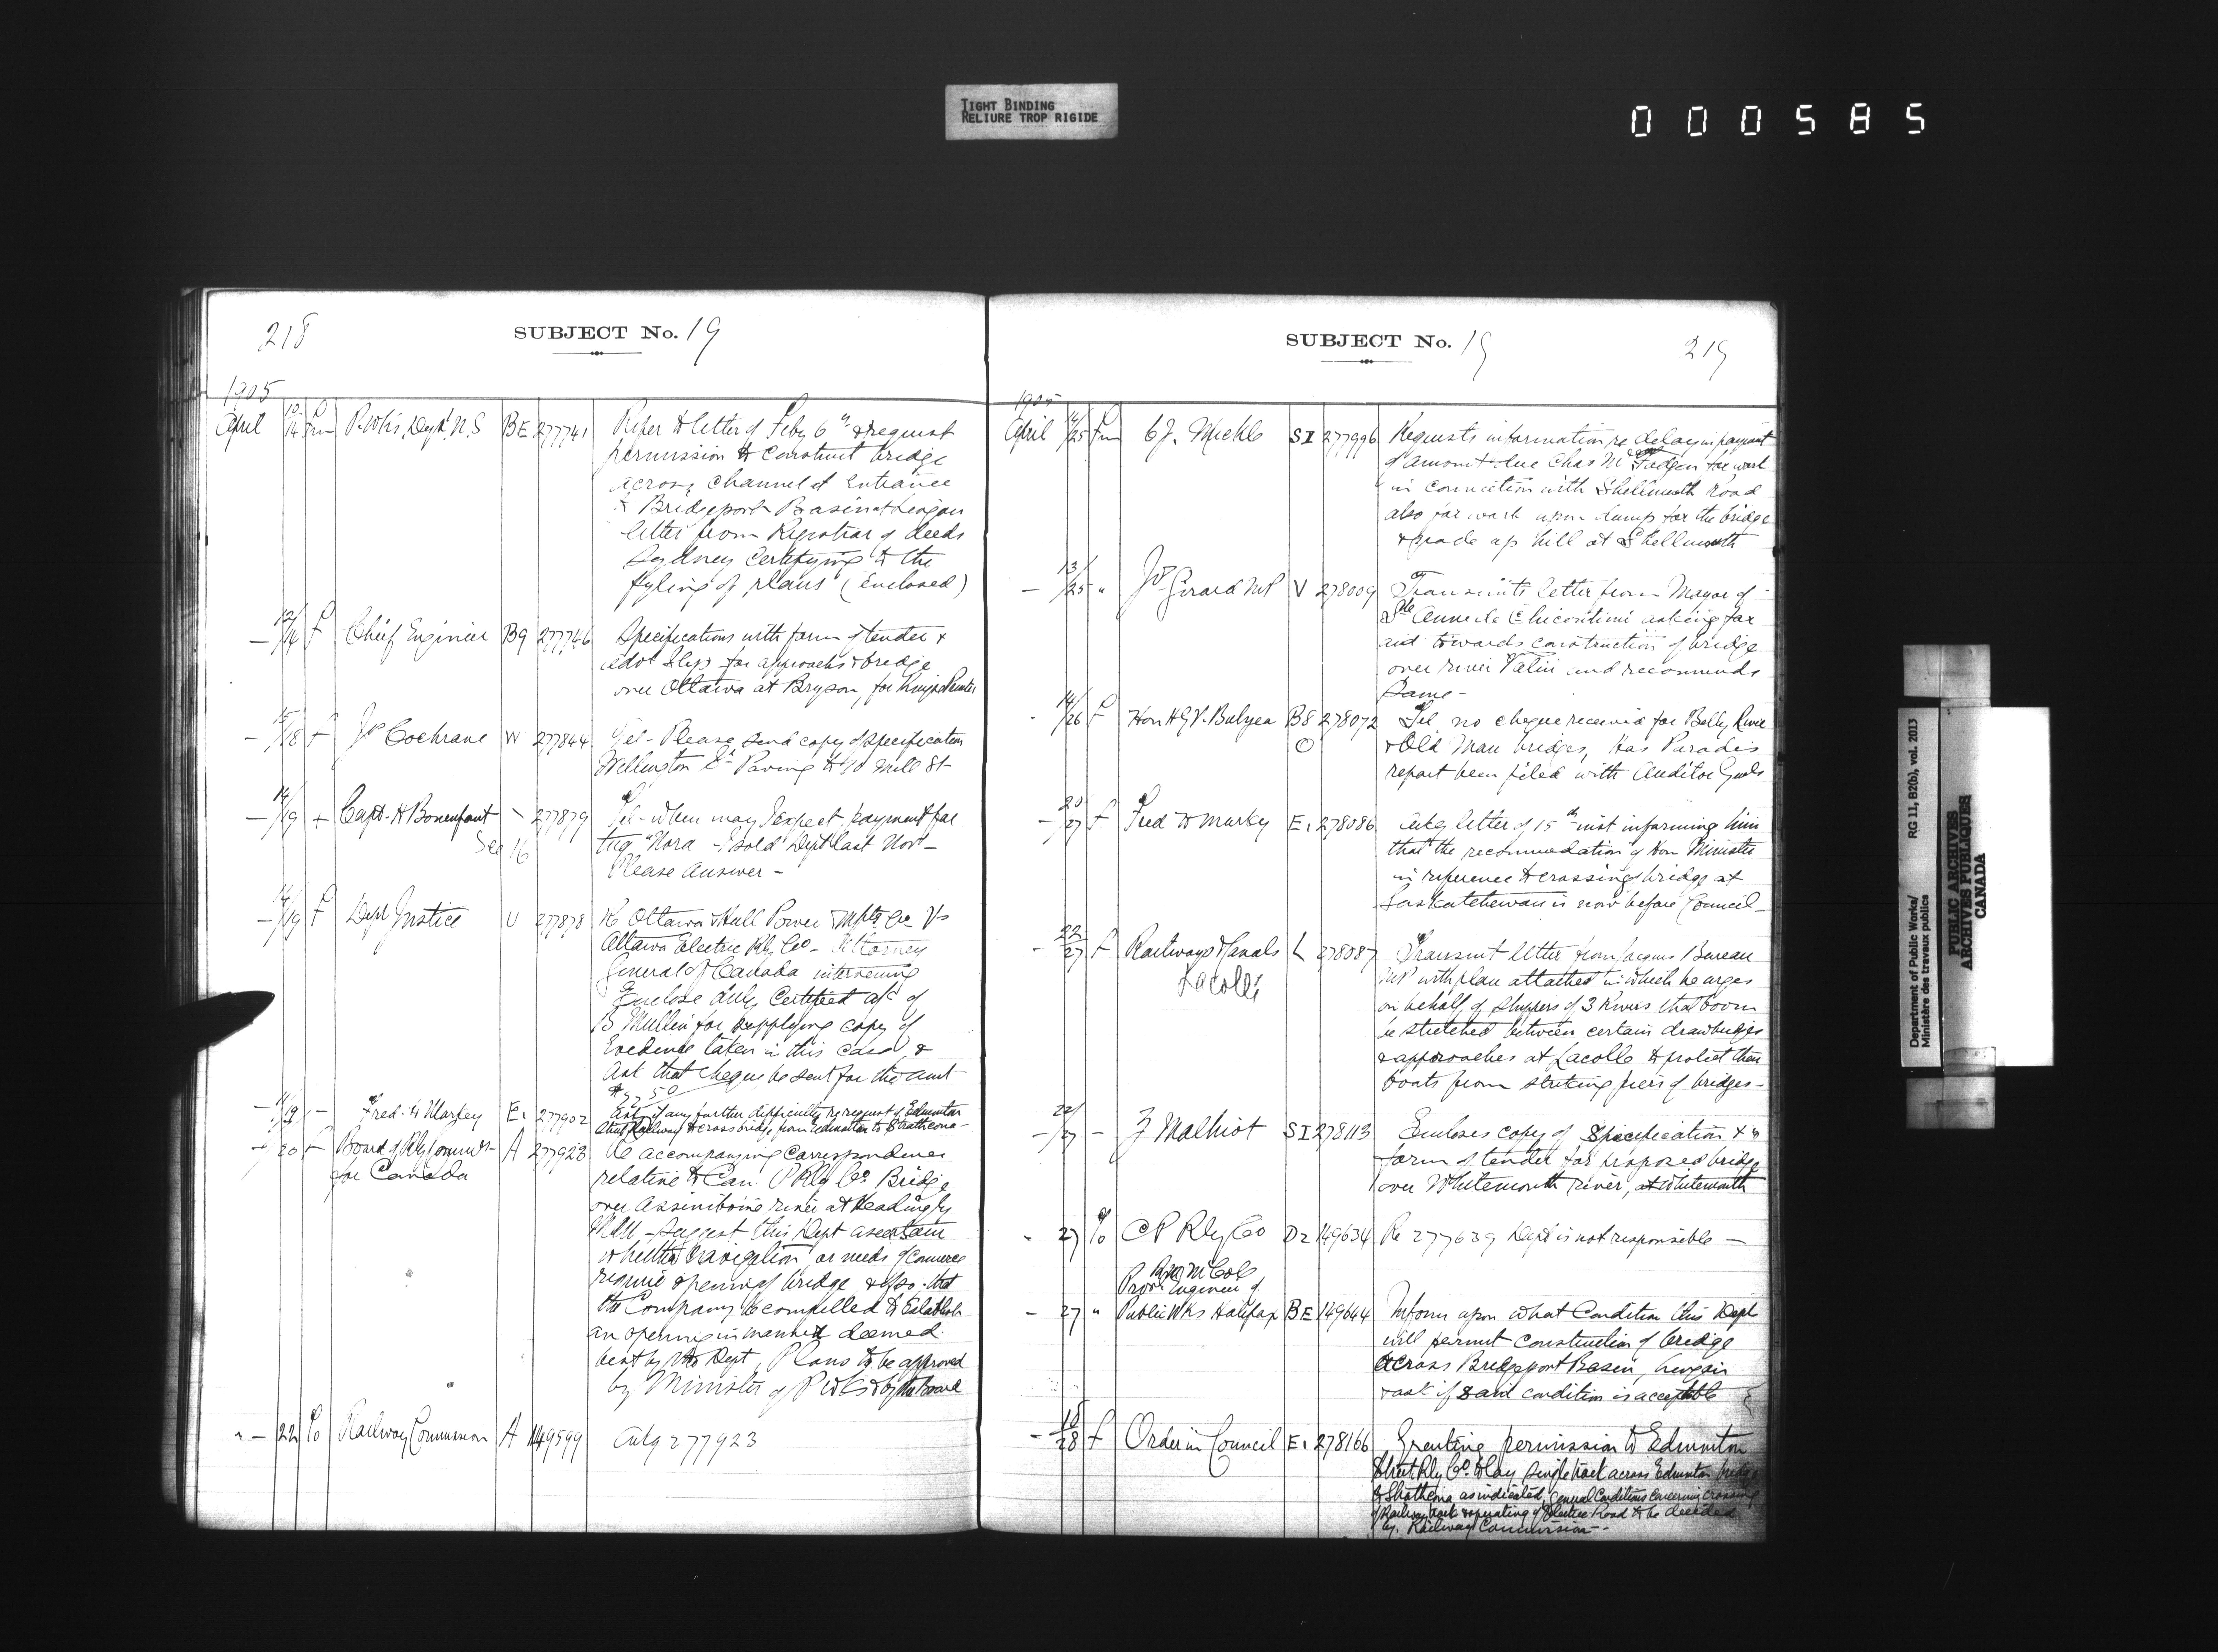 TIGHT BINDING
RELIURE TROP RIGIDE
000585
218
SUBJECT No. 19
1905
April 10/14 Frm P. Wks Dept. N.S BE 277741 Refer to letter of Feby 6th & request
permission to construct bridge
across channel at entrance
to Bridgeport Basin
letter from Registrar of deeds
Sydney Certifying to the
fyling of plans (Enclosed)
— 12/14 f Chief Engineer B9 277746 Specifications with form of tender &
advt slips for approaches & bridge
over Ottawa at Bryson, for Kings Printer
— 15/18 f Jas Cochrane W 277844 Tel - Please send copy of specification
Wellington St Paving to 90 Mill St -
— 14/19 f Capt. H Bonenfant 277879 Tel - when may I expect payment for
See 16
tug "Nora" I sold Dept last Novr -
Please Answer -
— 14/19 f Dept Justice U 277878 Re Ottawa & Hull Power & Mfg Co Vs
Ottawa Electric Rly Co - Attorney
General of Canada intervening
Enclose duly Certified a/c of
B Mullin for supplying copy of
Evidence taken in this case &
Ask that cheque be sent for the amt
$ 5 50
— 19 - Fred. W Marpey E1 277902 Asks if any further difficulty re request of Edmonton
Street Railway to cross bridge from Edmonton to Strathcona -
20 f Board of Rly Commrs A 277923 Re accompanying Correspondence
for Canada
relative to Can. P Rly Co. Bridge
over Assiniboine river at Headingly
Man. - Suggest this Dept ascertain
whether navigation or needs of Commerce
require opening of bridge & if so that
the Company be compelled to Establish
an opening in manner deemed
best by this Dept, Plans to be approved
by Minister of P Wks & by the Board
— 22 To Railway Commission A 149599 Ackg 277923
SUBJECT No. 19
219
1905
April 14/25 Frm C J. Mickle SI 277996 Requests information re delay in payment
of amount due Chas McFadgen for work
in connection with Shellmouth Road
also for work upon dump for the bridge
& grade up hill at Shellmouth
— 13/25 " Jos Girard MP V 278009 Transmits letter from Mayor of
Ste Anne de Chicoutimi asking for
aid towards construction of bridge
over river Valin and recommends
Same -
14/26 f Hon H G V. Bulyea B8 278072 Tel no cheque received for Belly River
O
& Old Man bridges, Has Paradis
report been filed with Auditor Genls
— 20/27 f Fred W Marky E1 278086 Ackg letter of 15th inst informing him
that the recommendation of Hon Minister
in reference to crossing bridge at
Saskatchewan is now before Council -
- 22/27 f Railways & Canals L 278087 Transmit letter from Jacques Bureau
Lacolle
MP with plan attached in which he urges
on behalf of shippers of 3 Rivers that boom
be stretched between certain drawbridges
& approaches at Lacolle to protect their
boats from striking piers of bridges -
— 22/27 - Z Malhiot SI 278113 Encloses copy of Specification &
form of tender for proposed bridge
over Whitemouth River, at Whitemouth
- 27 To C P Rly Co D2 149634 Re 277639 Dept is not responsible —
McColl
Provl Engineer of
- 27 " Public Wks Halifax BE 149644 Inform upon what Condition this Dept
will permit construction of bridge
across Bridgeport Basin, Lingan
& ask if said condition is acceptable
- 18/28 f Order in Council E1 278166 Granting permission to Edmonton
Street Rly Co. to lay single track across Edmonton bridge
to Strathcona as indicated, General Conditions Concerning crossing
of Railway track & operating of Electric Road to be decided
by Railway Commission -
Department of Public Works/
Ministère des travaux publics
RG 11, B2(b), vol. 2013
PUBLIC ARCHIVES
ARCHIVES PUBLIQUES
CANADA